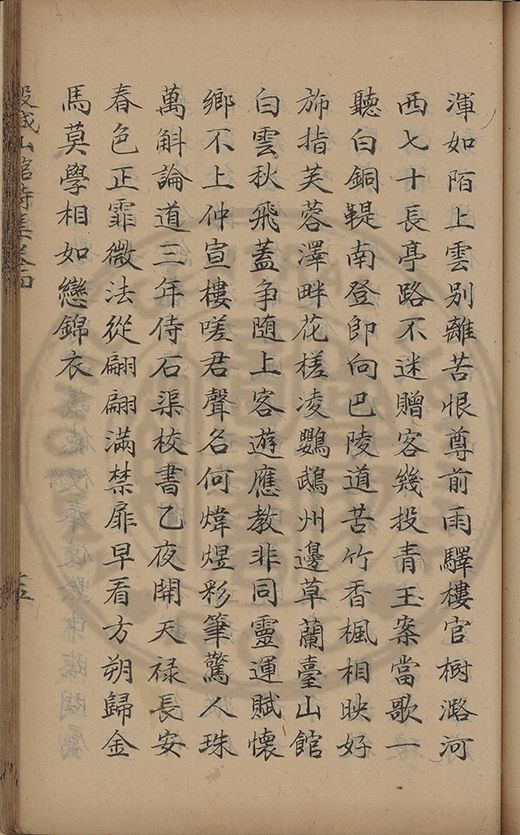 渾如陌上雲別離苦恨尊前雨驛樓官樹潞河
西七十長亭路不迷贈客幾投青玉案當歌一
聽白銅鞮南登即向巴陵道苦竹香楓相映好
斾指芙蓉澤畔花槎凌鸚鵡州邊草蘭臺山館
白雲秋飛蓋争随上客遊應教非同靈運賦懷
鄉不上仲宣樓嗟君聲名何煒煜彩筆驚人珠
萬斛論道三年侍石渠校書乙夜開天禄長安
春色正霏微法從翩翩滿禁扉早看方朔歸金
馬莫學相如戀錦衣
穀城山館詩集卷四
十五